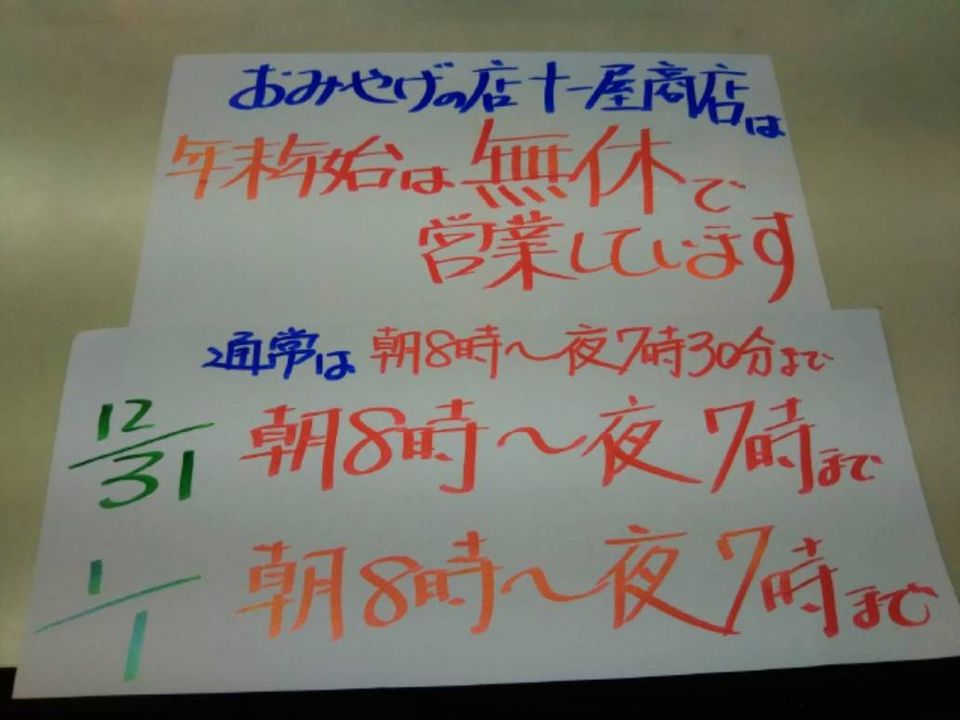 おみやげの店十一屋商店は
年末年始は無休で
営業しています
通常は 朝8時〜夜7時30分まで
12/31 朝8時〜夜7時まで
1/1 朝8時〜夜7時まで